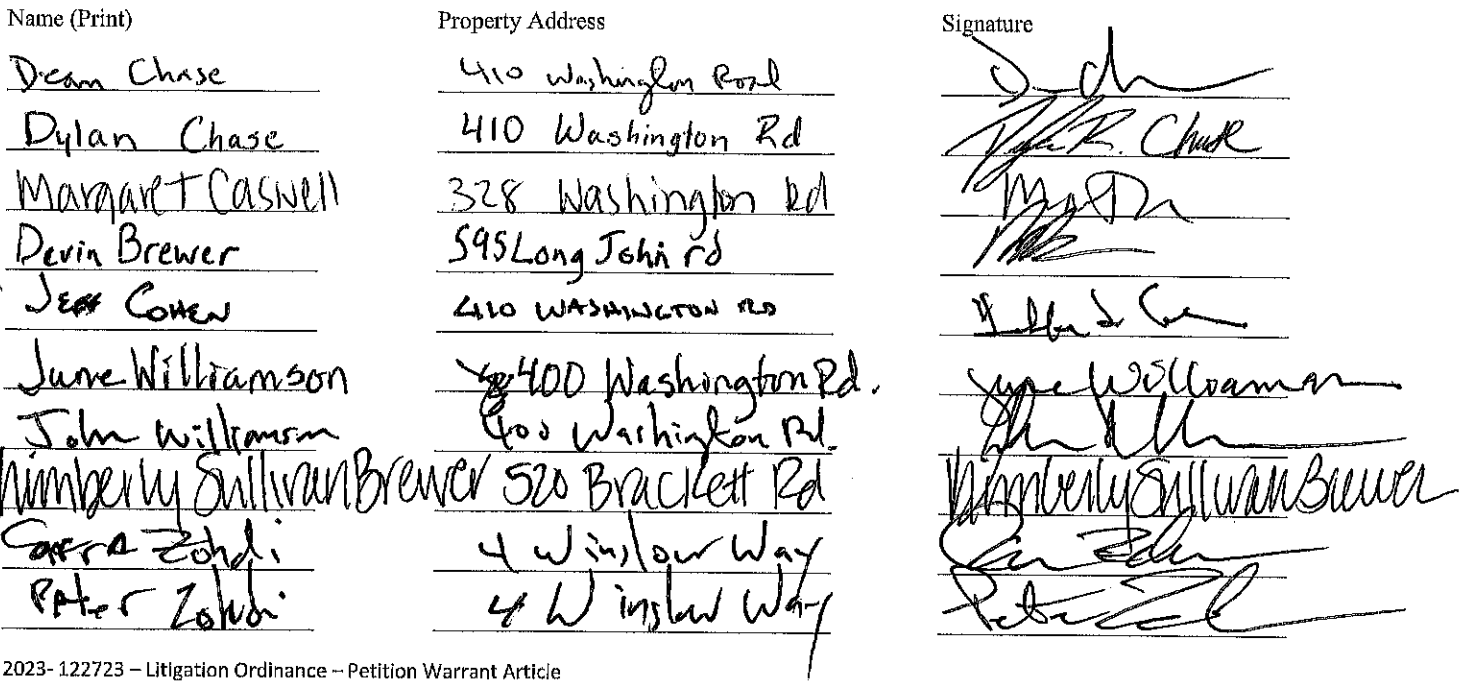 Name (Print) Property Address Signature
Dean Chase 410 Washington Road
Dylan Chase 410 Washington Rd Dylan R. Chase
Margaret Caswell 328 Washington Rd
Devin Brewer 595 Long John rd
Jeff COHEN 410 WASHINGTON RD
June Williamson 400 Washington Rd. June Williamson
John Williamson 400 Washington Rd.
Kimberly Sullivan Brewer 520 Brackett Rd Kimberly Sullivan Brewer
Zohdi 4 Winslow Way
Peter Zohdi 4 Winslow Way Peter
2023- 122723 – Litigation Ordinance – Petition Warrant Article